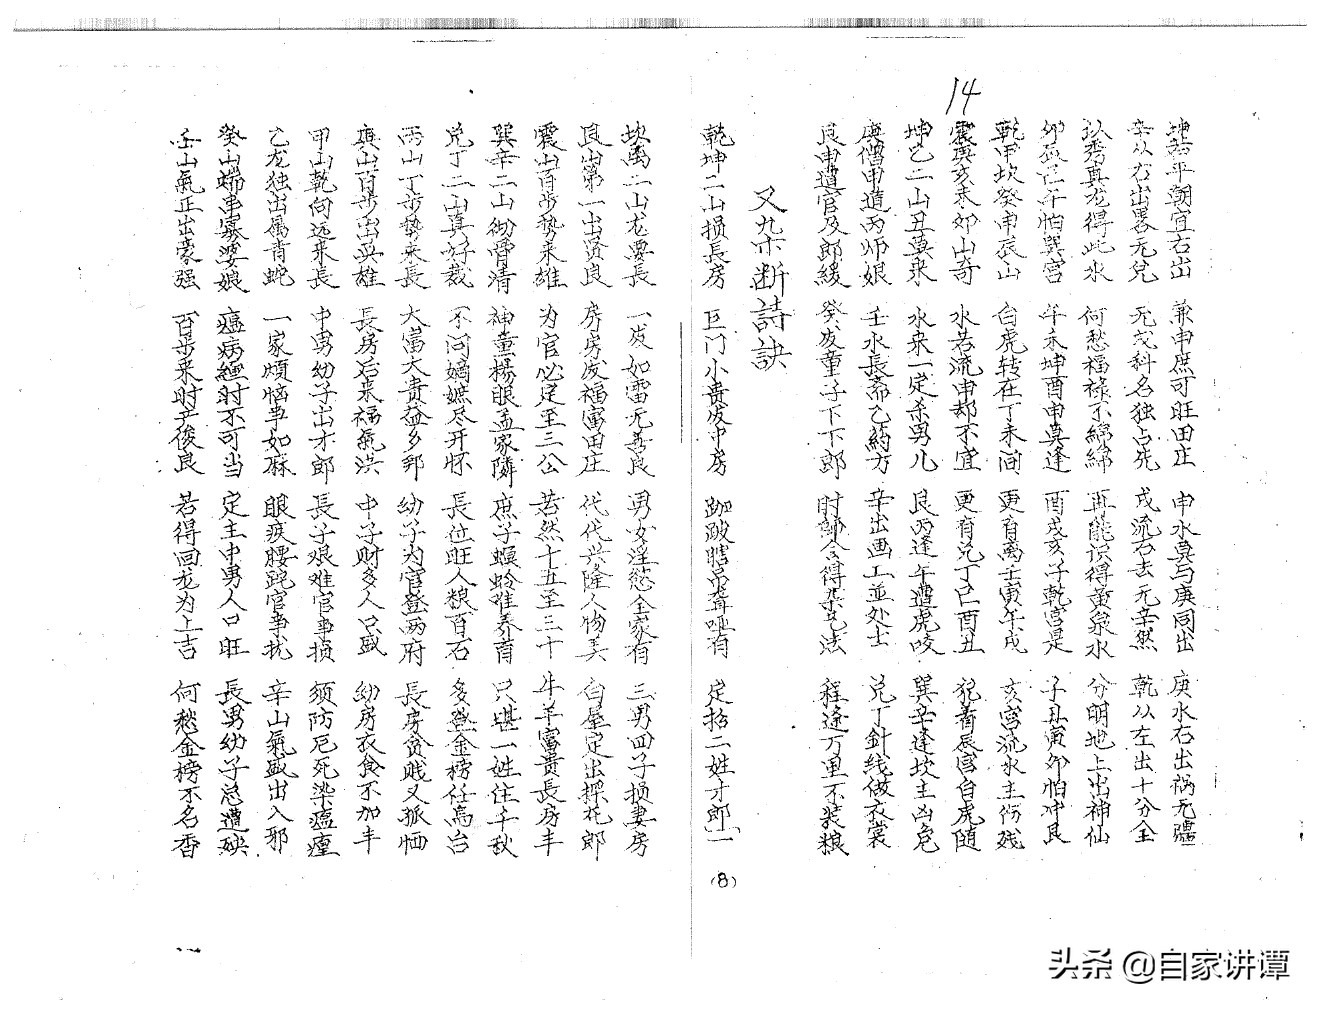 14
坤若平朝宜右出 兼申庶可旺田庄 申水莫与庚同出 庚水右出祸无疆
辛从右出畧无兌 无戈科名独占先 戌流石去无辛然 乾从左出十分全
玖秀真龙得此水 何愁福禄不綿綿 再能识得黄泉水 分明地上出神仙
卯辰巳午怕巽宮 午未坤酉申莫逢 酉戌亥子乾宫是 子丑寅卯怕冲艮
乾甲坎癸申辰山 白虎转在丁未间 更有离壬寅午戌 亥宫流水主伤残
震庚亥未卯山奇 水若流申却不宜 更有兌丁巳酉丑 犯着辰宫白虎随
坤乙二山丑莫来 水来一定杀男儿 艮丙逢午遭虎咬 巽辛逢坎主凶危
庚僧甲道丙师娘 壬水長斋乙葯方 辛出画工並处士 兌丁針线做衣裳
艮申遣官及郎緩 癸发童子下下郎 时師会得杂氣法 程逢万里不装粮
又九宋断詩訣
乾坤二山损長房 巨门小貴发中房 跏跛瞎吊聋哑有 定招二姓才郎
(8)
坎离二山龙要長 一发如雷无善良 男女淫慾全家有 三男四子损妻房
艮山第一出贤良 房房发福富田庄 代代兴隆人物美 白屋定出探花郎
震山百步势来雄 为官必定至三公 若然十五至三十 牛羊富貴長房丰
巽辛二山彻骨清 神童榜眼孟家隣 庶子螟蛉难养育 只堪一姓住千秋
兌丁二山真好裁 不问嫡嫬尽开怀 長位旺人粮百石 多登金榜任高台
丙山丁步勢来長 大富大貴益多郅 幼子为官登两府 長房贫贱又孤恓
庚山百步出英雄 長房后来福氣洪 中子财多人口盛 幼房衣食不加丰
甲山乾向远来長 中男幼子出才郎 長子艰难官事损 须防厄死染瘟瘽
乙龙独出属青蛇 一家烦恼事如麻 眼疾腰跎官事扰 辛山氣盛出入邪
癸山端串寡婆娘 瘟病纏时不可当 定主中男人口旺 長男幼子总遭殃
壬山氣正出豪强 百步来时产俊良 若得回龙为上吉 何愁金榜不名香
头条 @自家讲谭